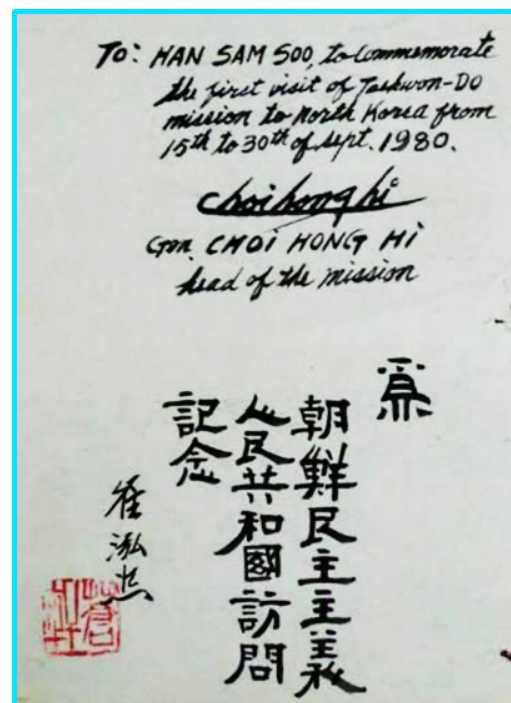 TO: HAN SAM SOO, to commemorate
the first visit of Taekwon-DO
mission to North Korea from
15th to 30th of Sept. 1980.
choi hong hi
Gen. CHOI HONG HI
head of the mission
為
朝鮮民主主義
人民共和國訪問
記念
崔泓熙